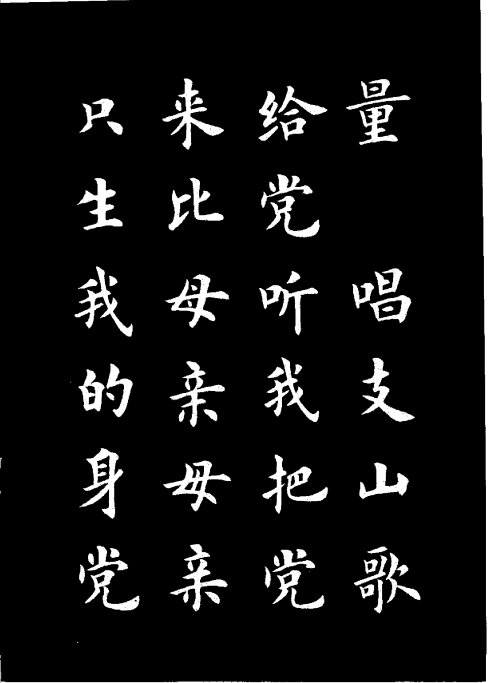 量 唱支山歌
给党听我把党
来比母亲母亲
只生我的身党